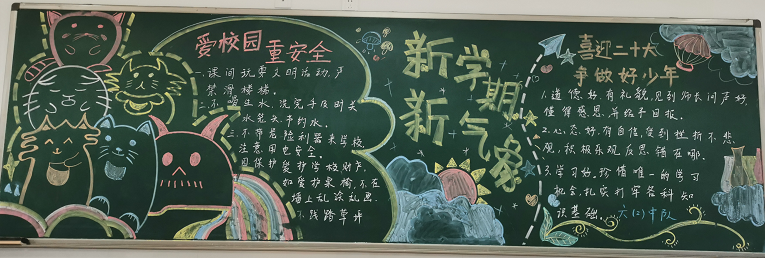 爱校园重安全
1.课间玩要文明活动,严
禁滑楼梯.
2.不喝生水,洗完手及时关
水龙头,节约水.
3.不带危险利器来学校,
注意用电安全.
爱护学校财产,
如爱护桌椅,不在
墙上乱涂乱画.
不践踏草坪
新学期
新气象
喜迎二十大
争做好少年
1.道德好,有礼貌,见到师长问声好,
懂得感恩,并给予回报.
2.心态好,有自信,受到挫折不悲
观,积极乐观反思错在哪.
3.学习好,珍惜唯一的学习
机会,扎实打牢各科知
识基础.
六(2)中队